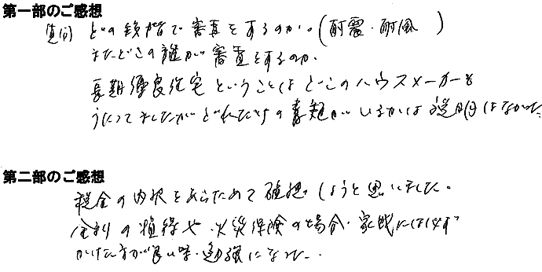 第一部のご感想
質問 どの段階で審査をするのか。(耐震・耐風 )
またどこの誰が審査をするのか。
長期優良住宅ということはどこのハウスメーカーも
うたってましたがどれだけの書類がいるかは説明はなかった
第二部のご感想
税金の内訳をあらためて確認しようと思いました。
金利の や火災保険の場合・家財には必ず
かけた方が良い 勉強になった..